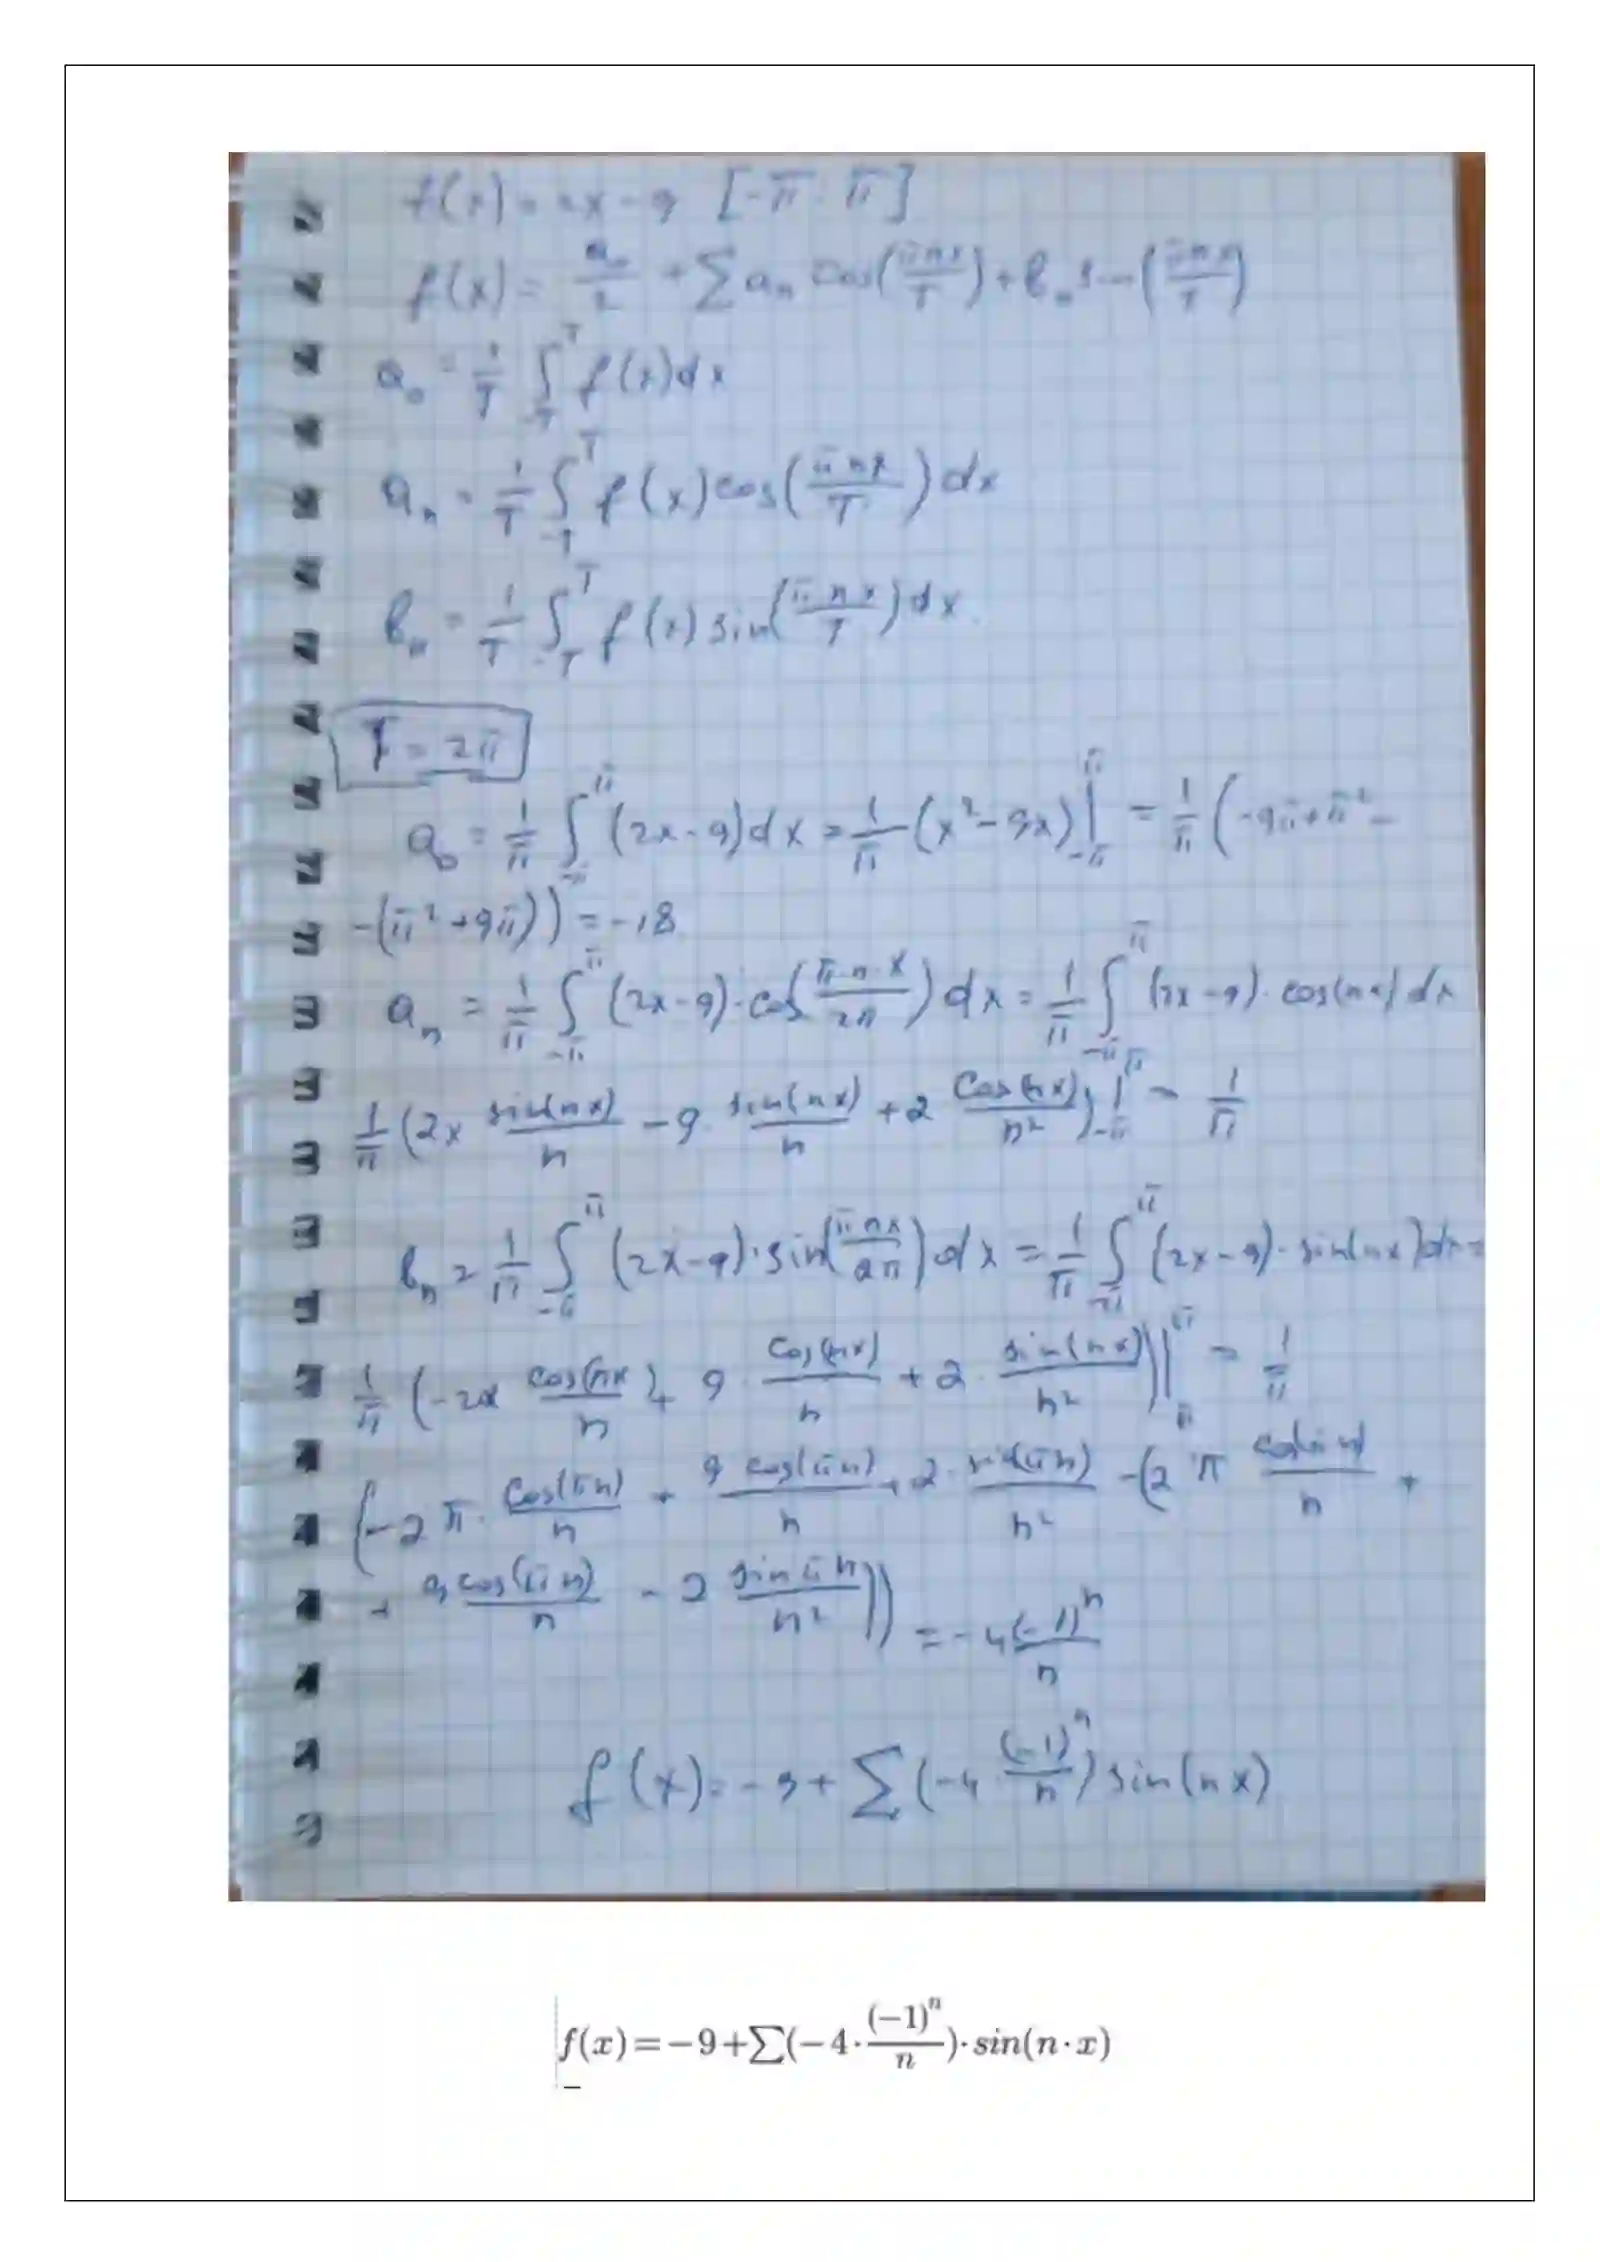 f(x) = 2x - 9 [-π; π]
f(x) = a₀/2 + ∑ aₙ cos(πnx/T) + bₙ sin(πnx/T)
a₀ = 1/T ∫_{-T}^{T} f(x)dx
aₙ = 1/T ∫_{-T}^{T} f(x)cos(πnx/T)dx
bₙ = 1/T ∫_{-T}^{T} f(x) sin(πnx/T)dx.
T = 2π
a₀ = 1/π ∫_{-π}^{π} (2x-9)dx = 1/π (x²-9x)|_{-π}^{π} = 1/π (-9π+π²-
-(π²+9π)) = -18
aₙ = 1/π ∫_{-π}^{π} (2x-9)·cos(π·n·x/2π) dx = 1/π ∫_{-π}^{π} (2x-9)·cos(nx)dx
1/π (2x sin(nx)/n - 9·sin(nx)/n + 2 cos(nx)/n²)|_{-π}^{π} = 1/π
bₙ = 1/π ∫_{-π}^{π} (2x-9)·sin(πnx/2π)dx = 1/π ∫_{-π}^{π} (2x-9)·sin(nx)dx =
1/π (-2x cos(nx)/n + 9·cos(nx)/n + 2·sin(nx)/n²)|_{π}^{π} = 1/π
(-2π·cos(πn)/n + 9 cos(πn)/n + 2·sin(πn)/n² - (2π cos(πn)/n +
+ 9cos(πn)/n - 2 sin πn/n²)) = -4(-1)ⁿ/n
f(x) = -9 + ∑(-4·(-1)ⁿ/n) sin(nx)
f(x)=-9+∑(-4·(-1)ⁿ/n)·sin(n·x)